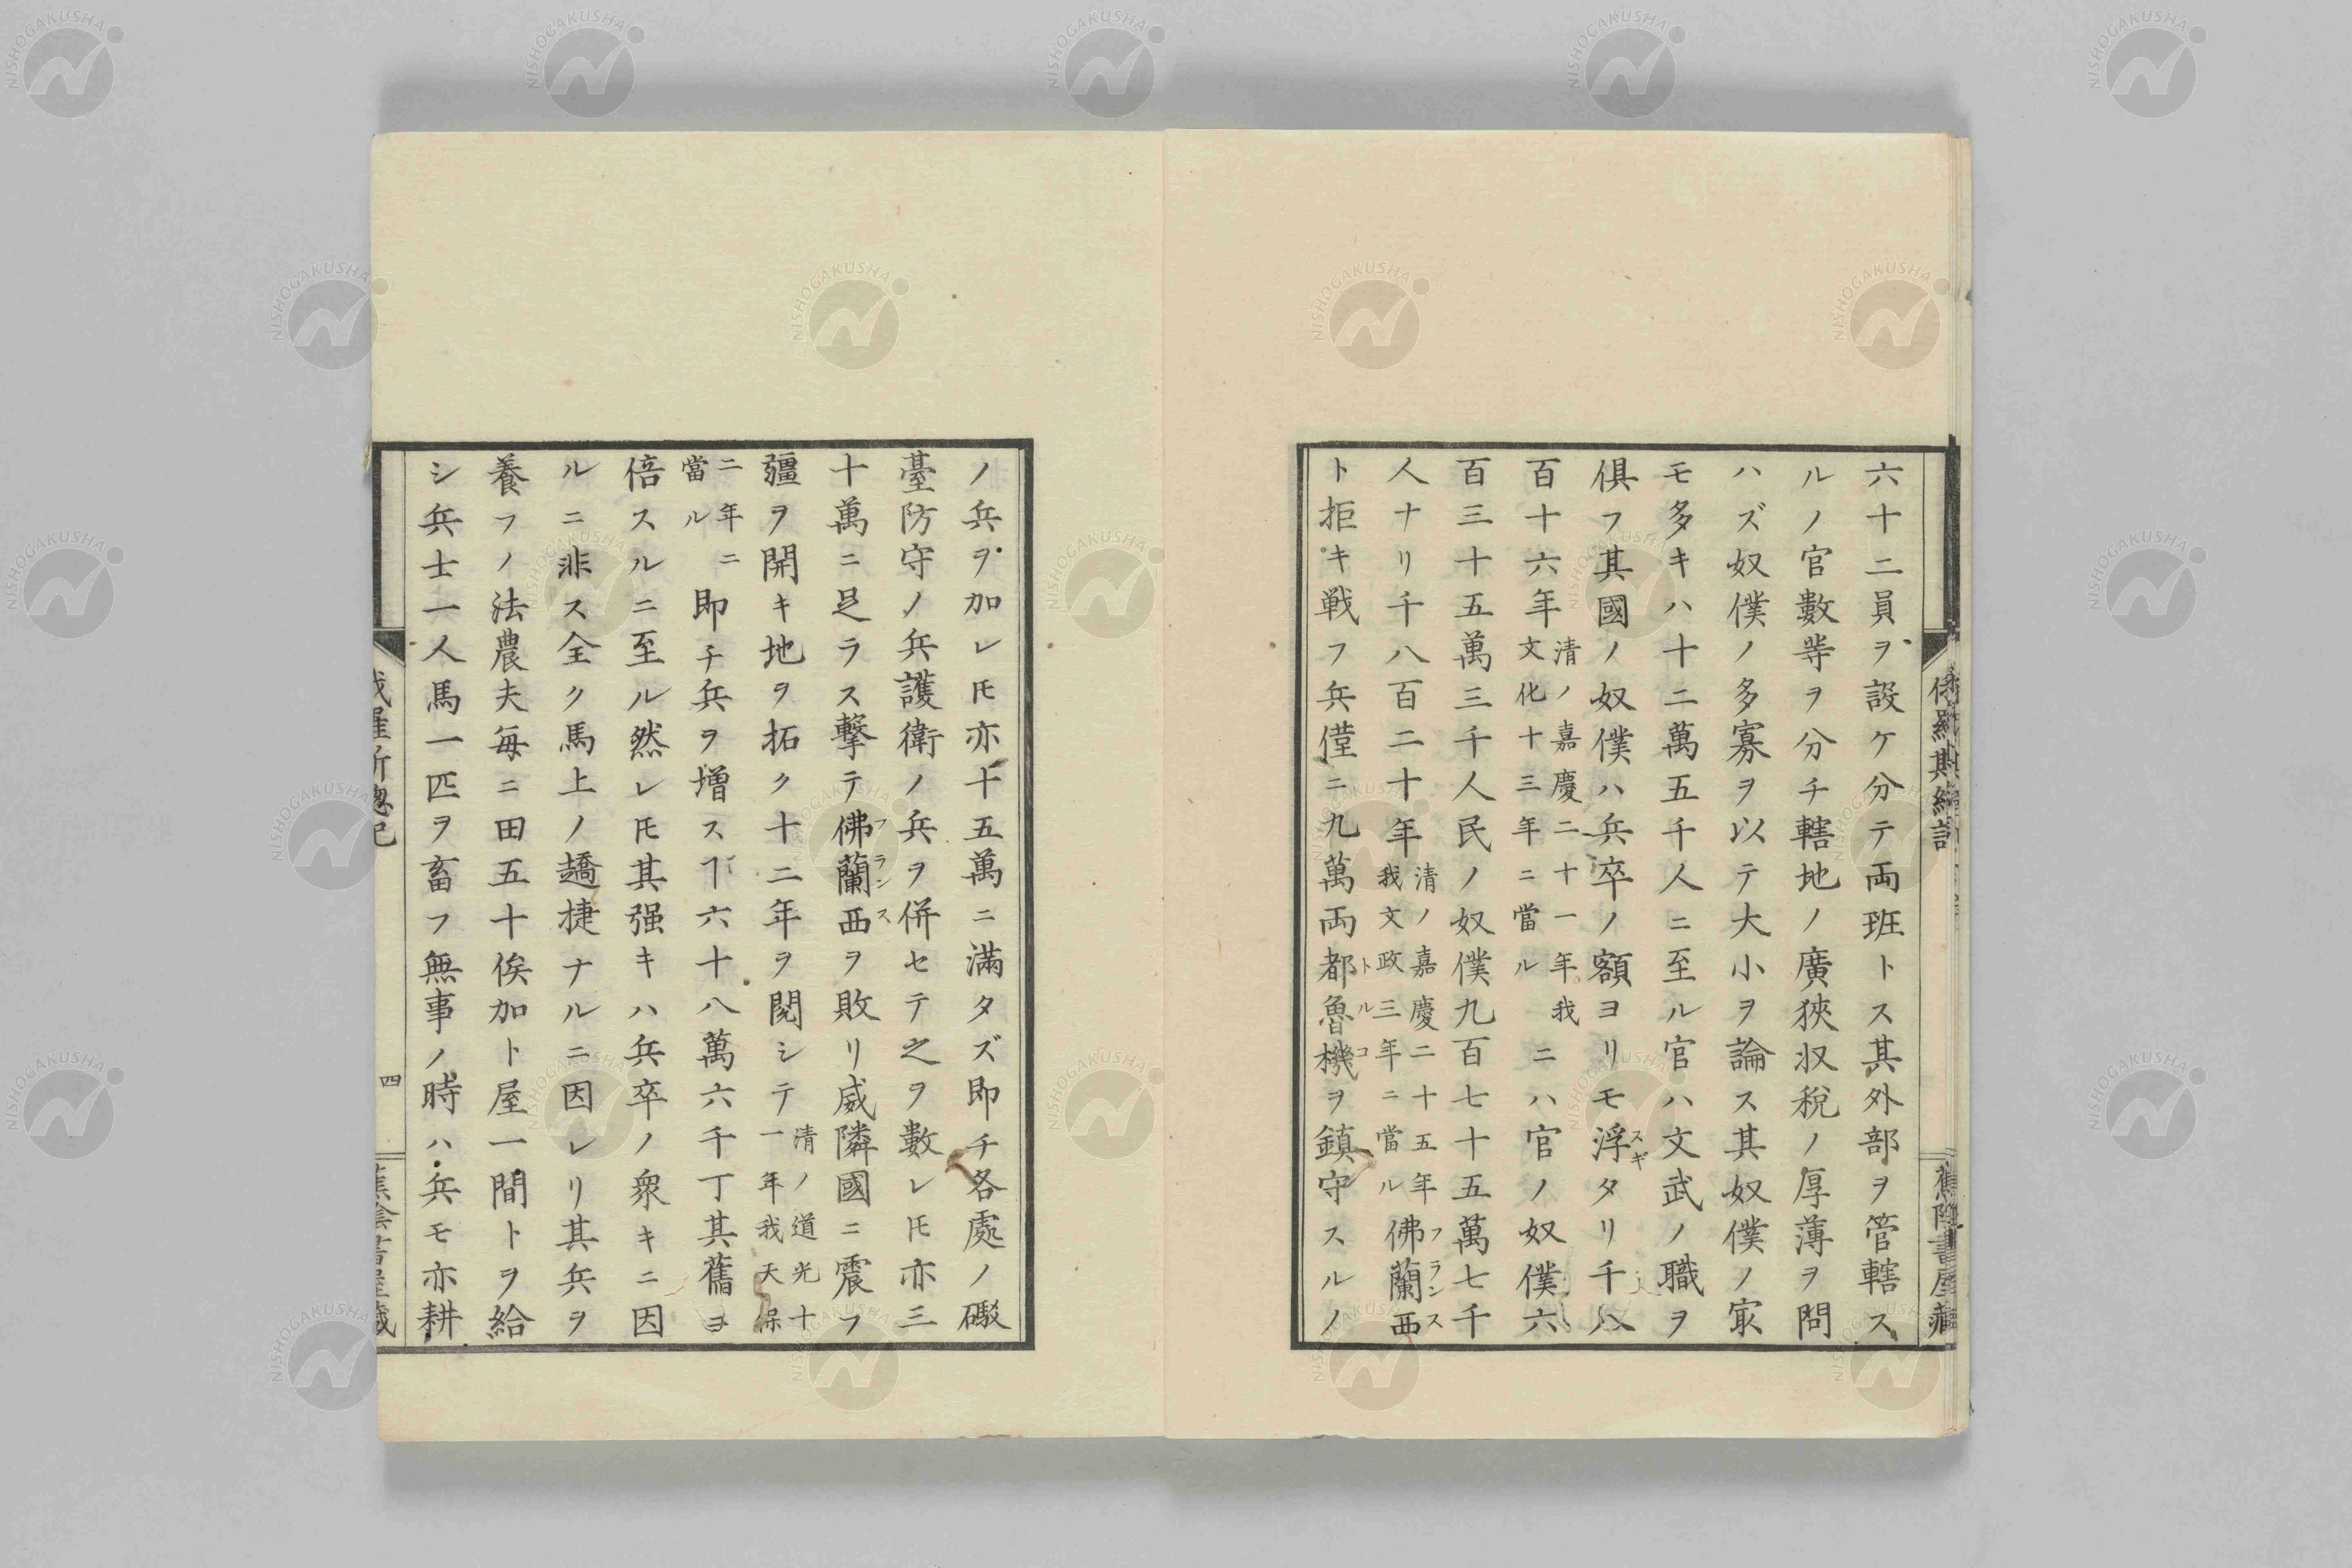 六十二員ヲ設ケ分テ両班トス其外部ヲ管轄ス
ルノ官數等ヲ分チ轄地ノ廣狹収稅ノ厚薄ヲ問
ハズ奴僕ノ多寡ヲ以テ大小ヲ論ス其奴僕ノ㝡
モ多キハ十二萬五千人ニ至ル官ハ文武ノ職ヲ
俱フ其國ノ奴僕ハ兵卒ノ額ヨリモ浮タリ千八
スギ
百十六年清ノ嘉慶二十一年我文化十三年ニ當ルニハ官ノ奴僕六
百三十五萬三千人民ノ奴僕九百七十五萬七千
人ナリ千八百二十年清ノ嘉慶二十五年我文政三年ニ當ル佛蘭西
フランス
ト拒キ戦フ兵僅ニ九萬両都魯機ヲ鎮守スルノ
トルコ
ノ兵ヲ加レ𪜈亦十五萬ニ滿タズ即チ各處ノ礮
臺防守ノ兵護衛ノ兵ヲ併セテ之ヲ數レ𪜈亦三
十萬ニ足ラス擊テ佛蘭西ヲ敗リ威隣國ニ震フ
フランス
疆ヲ開キ地ヲ拓ク十二年ヲ閱シテ清ノ道光十一年我天保
二年ニ當ル即チ兵ヲ增スヿ六十八萬六千丁其舊ヨ
倍スルニ至ル然レ𪜈其强キハ兵卒ノ衆キニ因
ルニ非ス全ク馬上ノ趫捷ナルニ因レリ其兵ヲ
養フノ法農夫毎ニ田五十俟加ト屋一間トヲ給
シ兵士一人馬一匹ヲ畜フ無事ノ時ハ兵モ亦耕
四
NISHOGAKUSHA